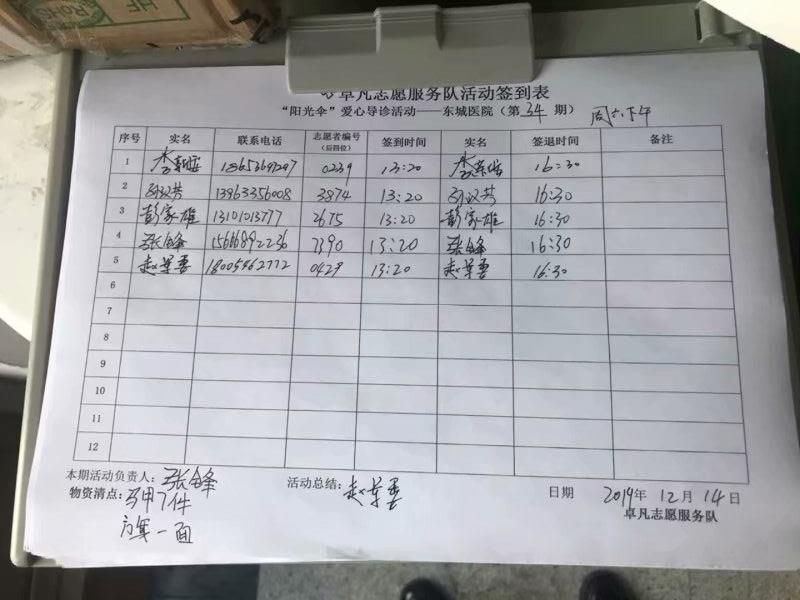 卓凡志愿服务队活动签到表
“阳光伞”爱心导诊活动——东城医院（第 34 期） 周六下午
序号 实名 联系电话 志愿者编号（后四位） 签到时间 实名 签退时间 备注
1 李 0239 13:20 李 16:30
2 孙汉芳 13963356008 3874 13:20 孙汉芳 16:30
3 彭家雄 13101013777 2675 13:20 彭家雄 16:30
4 张锋 15616892236 7390 13:20 张锋 16:30
5 赵 18005462772 0429 13:20 赵 16:30
6
7
8
9
10
11
12
本期活动负责人：张锋 活动总结：赵 日期 2019年 12月 14日
物资清点：马甲7件 卓凡志愿服务队
一面